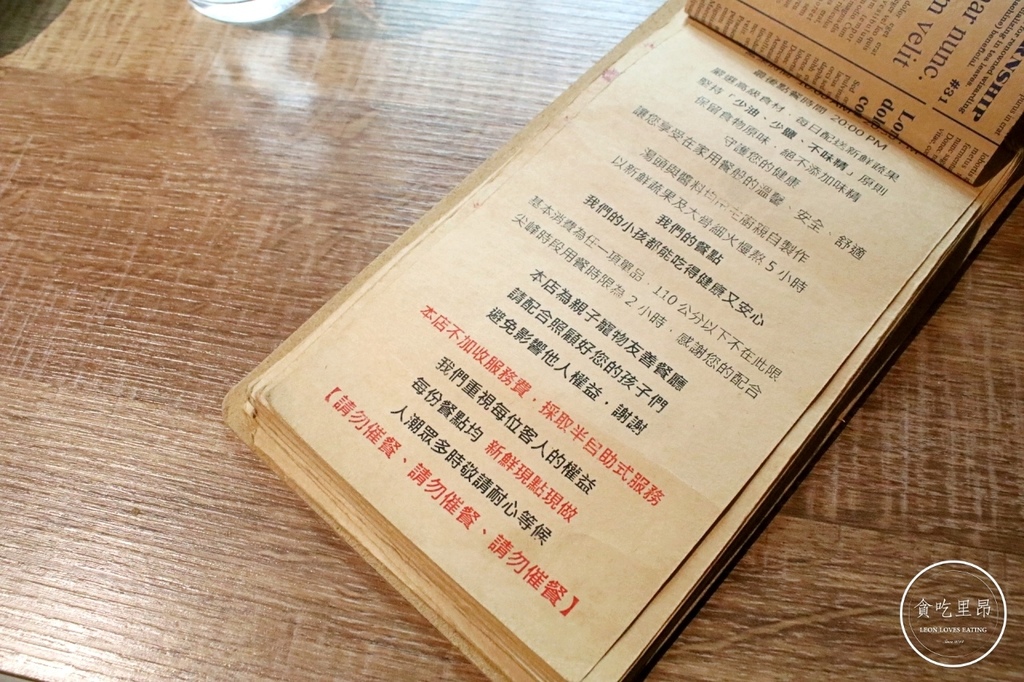 最後點餐時間 20:00 PM
嚴選高級食材，每日配送新鮮蔬果
堅持「少油、少鹽、不味精」原則
保留食物原味，絕不添加味精
守護您的健康
讓您享受在家用餐般的溫馨、安全、舒適
湯頭與醬料均由主廚親自製作
以新鮮蔬果及大骨細火慢熬 5 小時
我們的餐點
我們的小孩都能吃得健康又安心
基本消費為任一項單品，110 公分以下不在此限
尖峰時段用餐時限為 2 小時，感謝您的配合
本店為親子寵物友善餐廳
請配合照顧好您的孩子們
避免影響他人權益，謝謝
本店不加收服務費，採取半自助式服務
我們重視每位客人的權益
每份餐點均 新鮮現點現做
人潮眾多時敬請耐心等候
【請勿催餐、請勿催餐、請勿催餐】
nunc.
velit
#31
貪吃里昂
LEON LOVES EATING